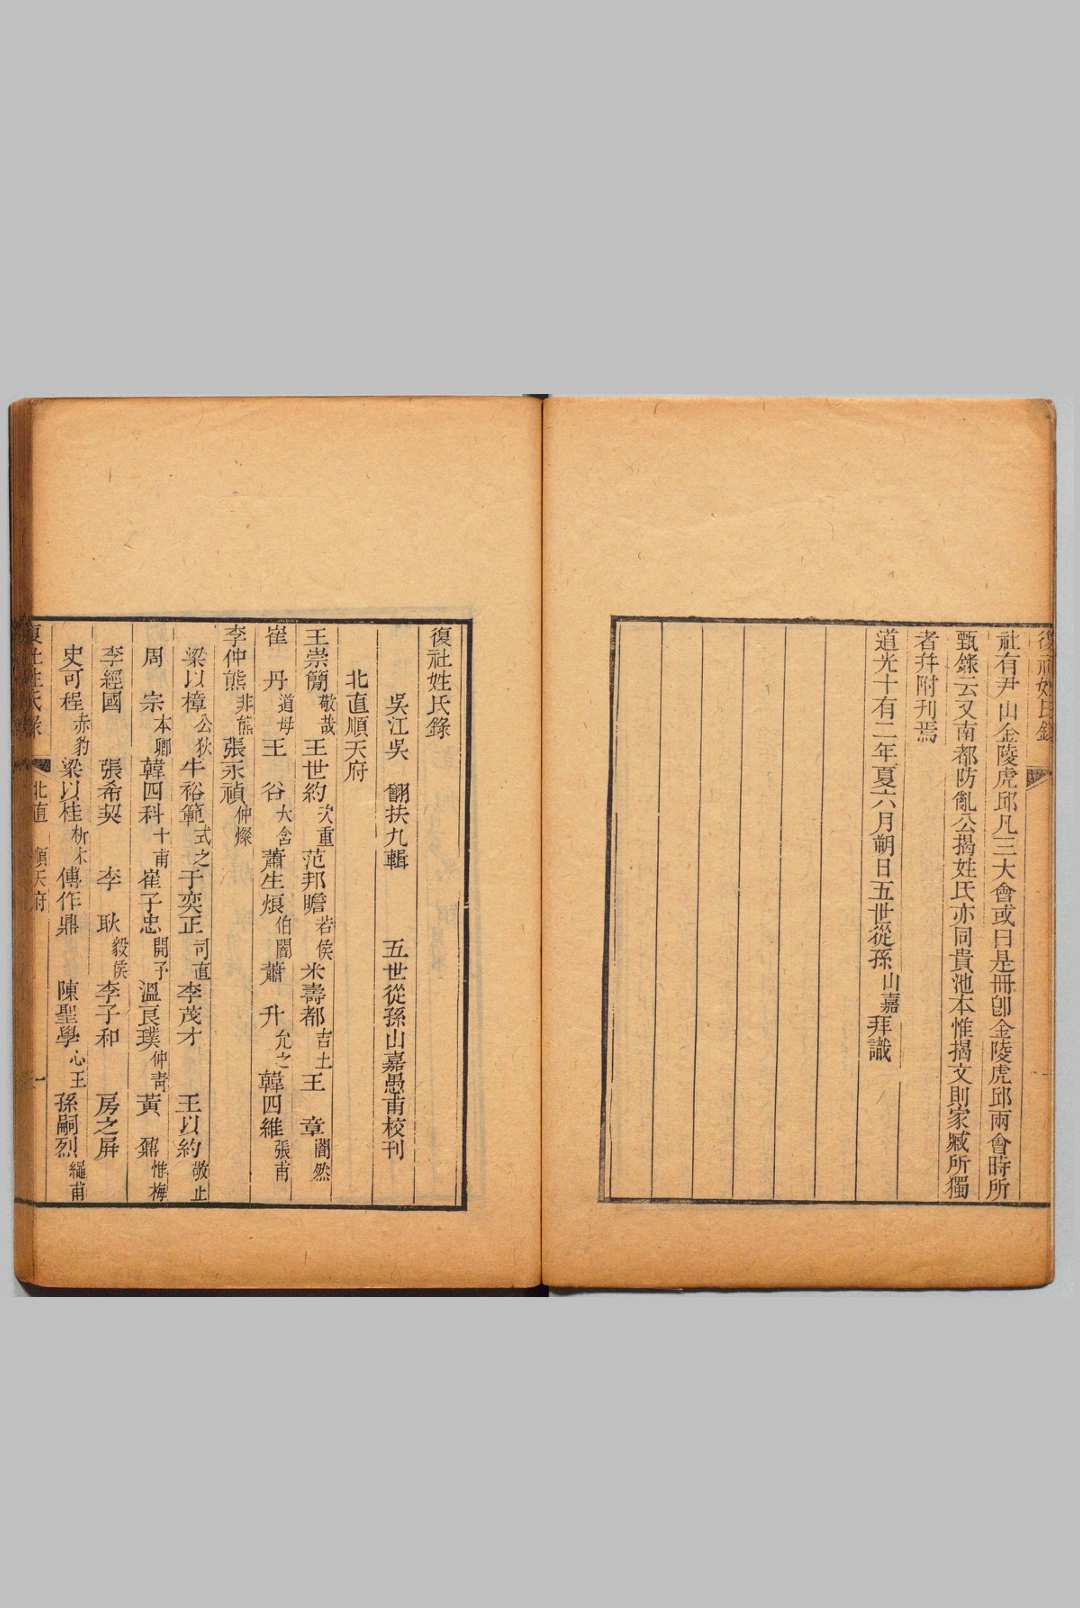 復社姓氏錄
社有尹山金陵虎邱凡三大會或曰是冊卽金陵虎邱兩會時所
甄錄云又南都防亂公揭姓氏亦同貴池本惟揭文則家臧所獨
者幷附刊焉
道光十有二年夏六月朔日五世從孫山嘉拜識
復社姓氏錄
吳江吳 翻扶九輯 五世從孫山嘉愚甫校刊
北直順天府
王崇簡敬哉 王世約次重 范邦瞻若侯 米壽都吉土 王 章闇然
崔 丹道母 王 谷大含 蕭生烺伯闇 蕭 升允之 韓四維張甫
李仲熊非熊 張永禎仲燦
梁以樟公狄 牛裕範式之 于奕正司直 李茂才 王以約敬止
周 宗本卿 韓四科十甫 崔子忠開予 溫良璞仲靑 黃 鼐惟梅
李經國 張希契 李 耿毅侯 李子和 房之屏
史可程赤豹 梁以桂析木 傅作鼎 陳聖學心王 孫嗣烈繩甫
復社姓氏錄 北直 順天府 一